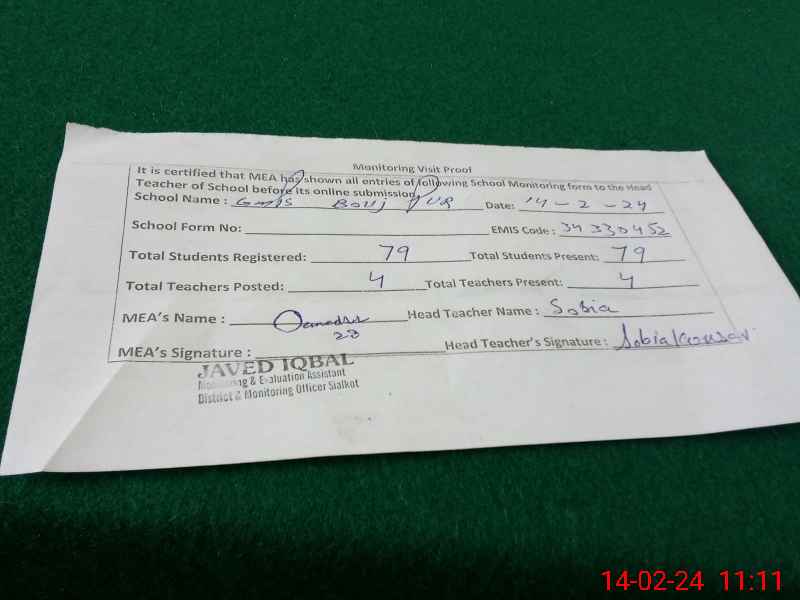 Monitoring Visit Proof
It is certified that MEA has shown all entries of following School Monitoring form to the Head
Teacher of School before its online submission.
School Name : GMPS BOUJ PUR Date: 14-2-24
School Form No: EMIS Code : 34330452
Total Students Registered: 79 Total Students Present: 79
Total Teachers Posted: 4 Total Teachers Present: 4
MEA's Name : Head Teacher Name : Sobia
23
MEA's Signature : Head Teacher's Signature : Sobia Kousar
JAVED IQBAL
Monitoring & Evaluation Assistant
District & Monitoring Officer Sialkot
14-02-24 11:11